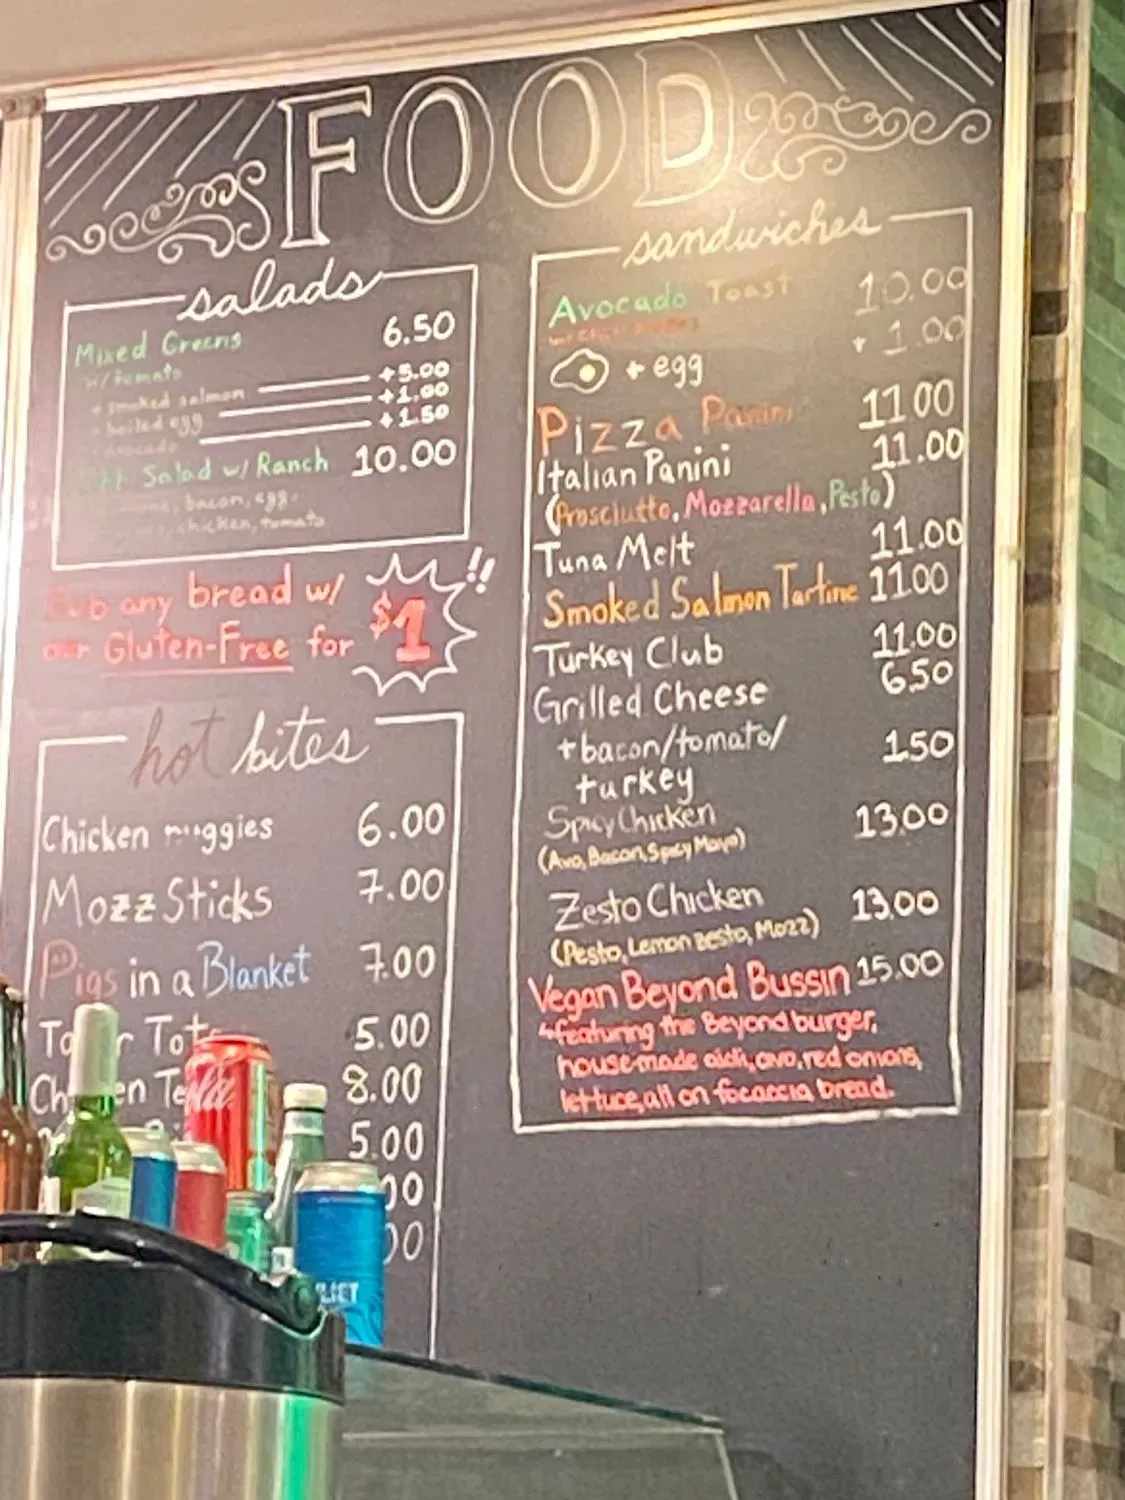 FOOD
salads
Mixed Greens 6.50
w/tomato
+ smoked salmon +5.00
+ boiled egg +1.00
avocado +1.50
Salad w/ Ranch 10.00
bacon, egg,
chicken, tomato
Sub any bread w/
our Gluten-Free for $1!!
hot bites
Chicken nuggies 6.00
Mozz Sticks 7.00
Pigs in a Blanket 7.00
5.00
8.00
5.00
00
00
sandwiches
Avocado Toast 10.00
+ egg + 1.00
Pizza Panini 11.00
Italian Panini 11.00
(Prosciutto, Mozzarella, Pesto)
Tuna Melt 11.00
Smoked Salmon Tartine 11.00
Turkey Club 11.00
Grilled Cheese 6.50
+bacon/tomato/ 1.50
turkey
Spicy Chicken 13.00
(Avo, Bacon, Spicy Mayo)
Zesto Chicken 13.00
(Pesto, Lemon zesto, Mozz)
Vegan Beyond Bussin 15.00
↳featuring the Beyond burger,
house-made aioli, avo, red onions,
lettuce, all on focaccia bread.